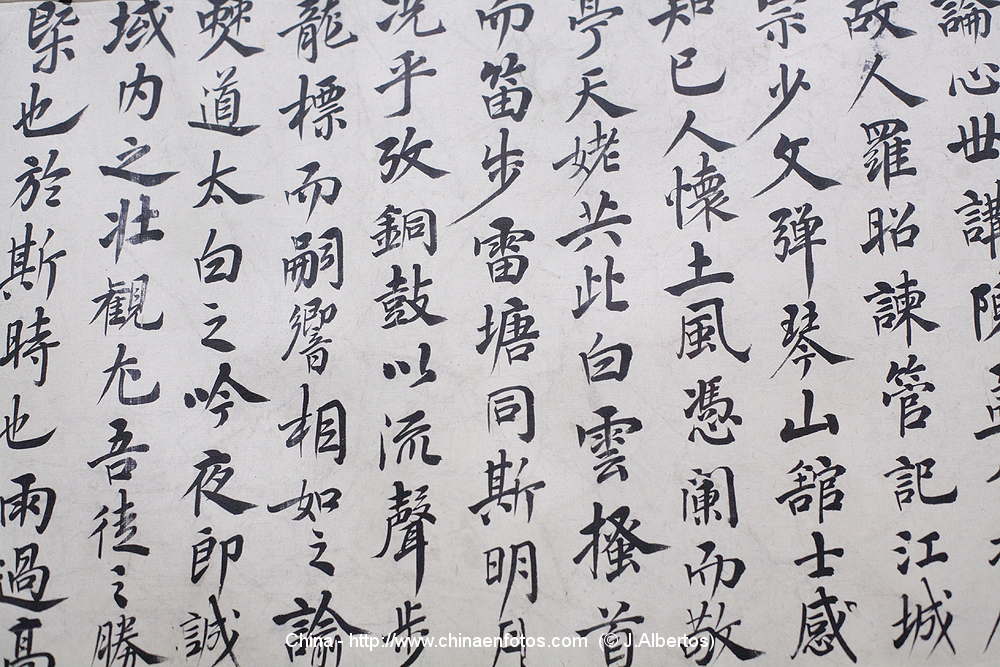 論心世講陳
故人羅昭諫管記江城
宗少文彈琴山舘士感
知己人懷土風憑闌而敬
亭天姥共此白雲搔首
而笛步雷塘同斯明月
况乎攷銅鼓以流聲步
龍標而嗣響相如之諭
僰道太白之吟夜郎誠
域内之壯觀尤吾徒之勝
槩也於斯時也雨過高
China - http://www.chinaenfotos.com (© J.Albertos)